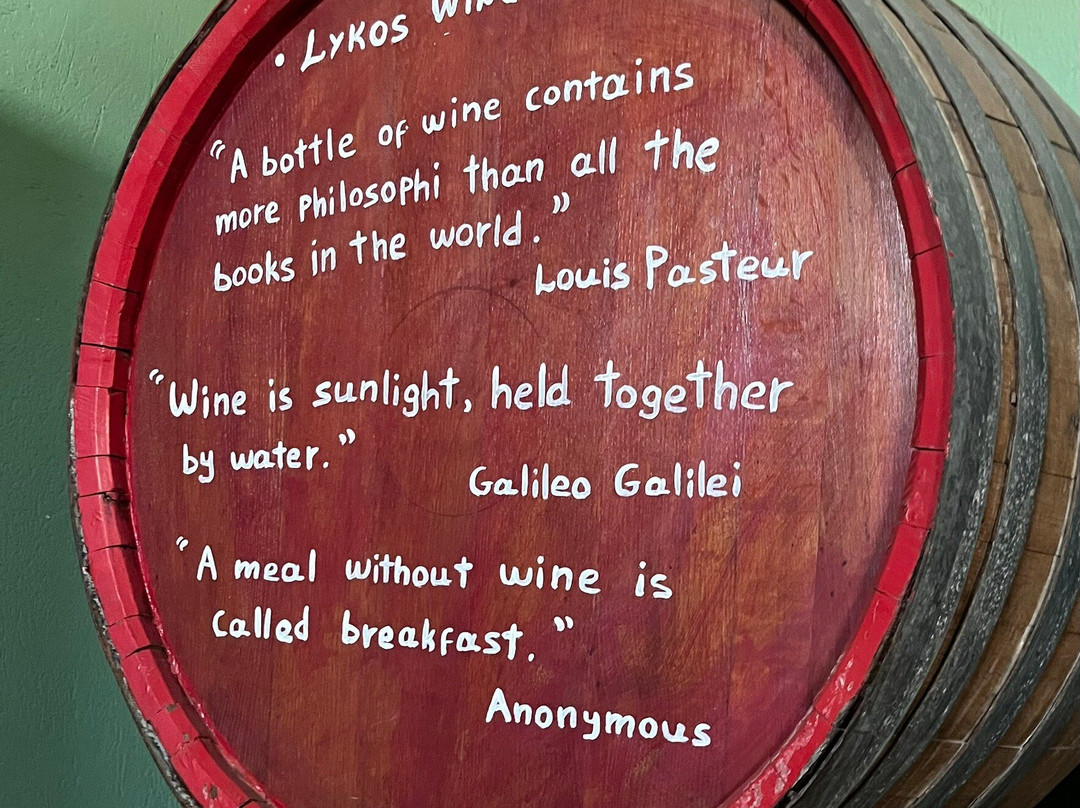 • LYKOS
“A bottle of wine contains
more Philosophi than all the
books in the world.”
Louis Pasteur
“Wine is sunlight, held together
by water.”
Galileo Galilei
“A meal without wine is
called breakfast.”
Anonymous